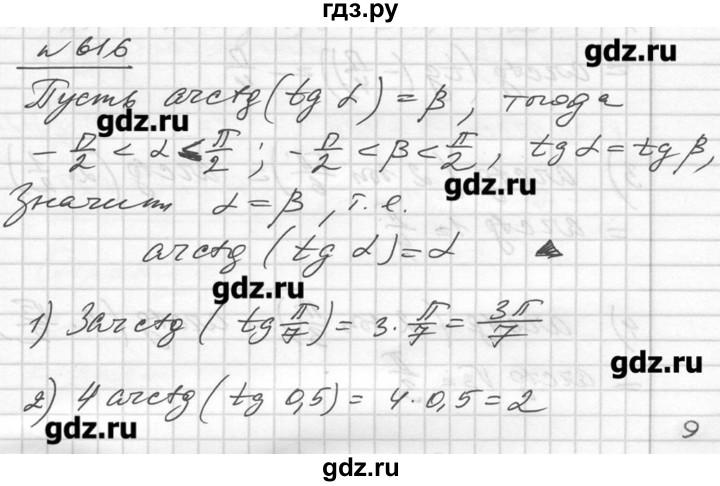 гдз.ру
№ 616
gdz.ru
Пусть arctg(tg α) = β, тогда
gdz.ru
-π/2 < α < π/2; -π/2 < β < π/2, tg α = tg β,
gdz.ru
Значит α = β, т.е.
arctg(tg α) = α ▲
gdz.ru
1) 3arctg(tg π/7) = 3·π/7 = 3π/7
gdz.ru
2) 4 arctg(tg 0,5) = 4·0,5 = 2
gdz.ru
9
gdz.ru